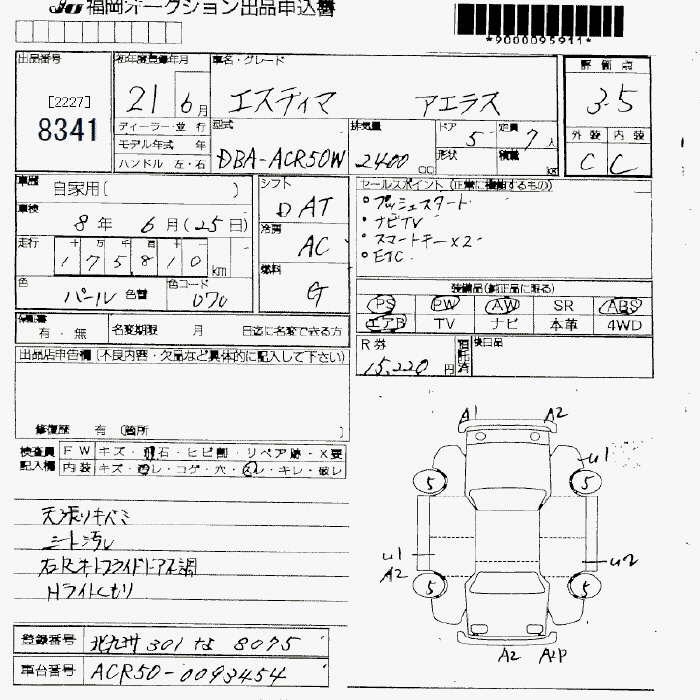 JU 福岡オークション出品申込書
*9000095911*
出品番号
[2227]
8341
初年度登録年月
21 6月
ディーラー・並行
モデル年式 年
ハンドル 左・右
車名・グレード
エスティマ アエラス
型式
DBA-ACR50W
排気量
2400 CC
ドア 5
形状
定員 7人
積載 kg
評価点
3.5
外装 内装
C C
車歴 自家用( )
車検 8年 6月(25日)
走行 十 万 千 百 十
175,810 km
色 パール 色替
色コード 070
シフト
DAT
冷房
AC
燃料
G
セールスポイント (正常に機能するもの)
・プッシュスタート
・ナビTV
・スマートキー×2
・ETC
装備品(純正品に限る)
PS PW AW SR ABS
エアB TV ナビ 本革 4WD
保証書 有・無
名変期限 月 日迄に名変できる方
R券
15,220円
後日品
出品店申告欄 (不良内容・欠品など具体的に記入して下さい)
修復歴 有 (箇所 )
検査員記入欄
FW キズ・飛石・ヒビ割・リペア跡・X要
内装 キズ・汚レ・コゲ・穴・スレ・キレ・破レ
天張リキバミ
シート汚レ
右Rオートスライドドア不調
Hライトくもり
A1 A2
u1
5 5
u1
A2
u2
5 5
A2 A2P
登録番号 北九州 301 な 8075
車台番号 ACR50-0093454